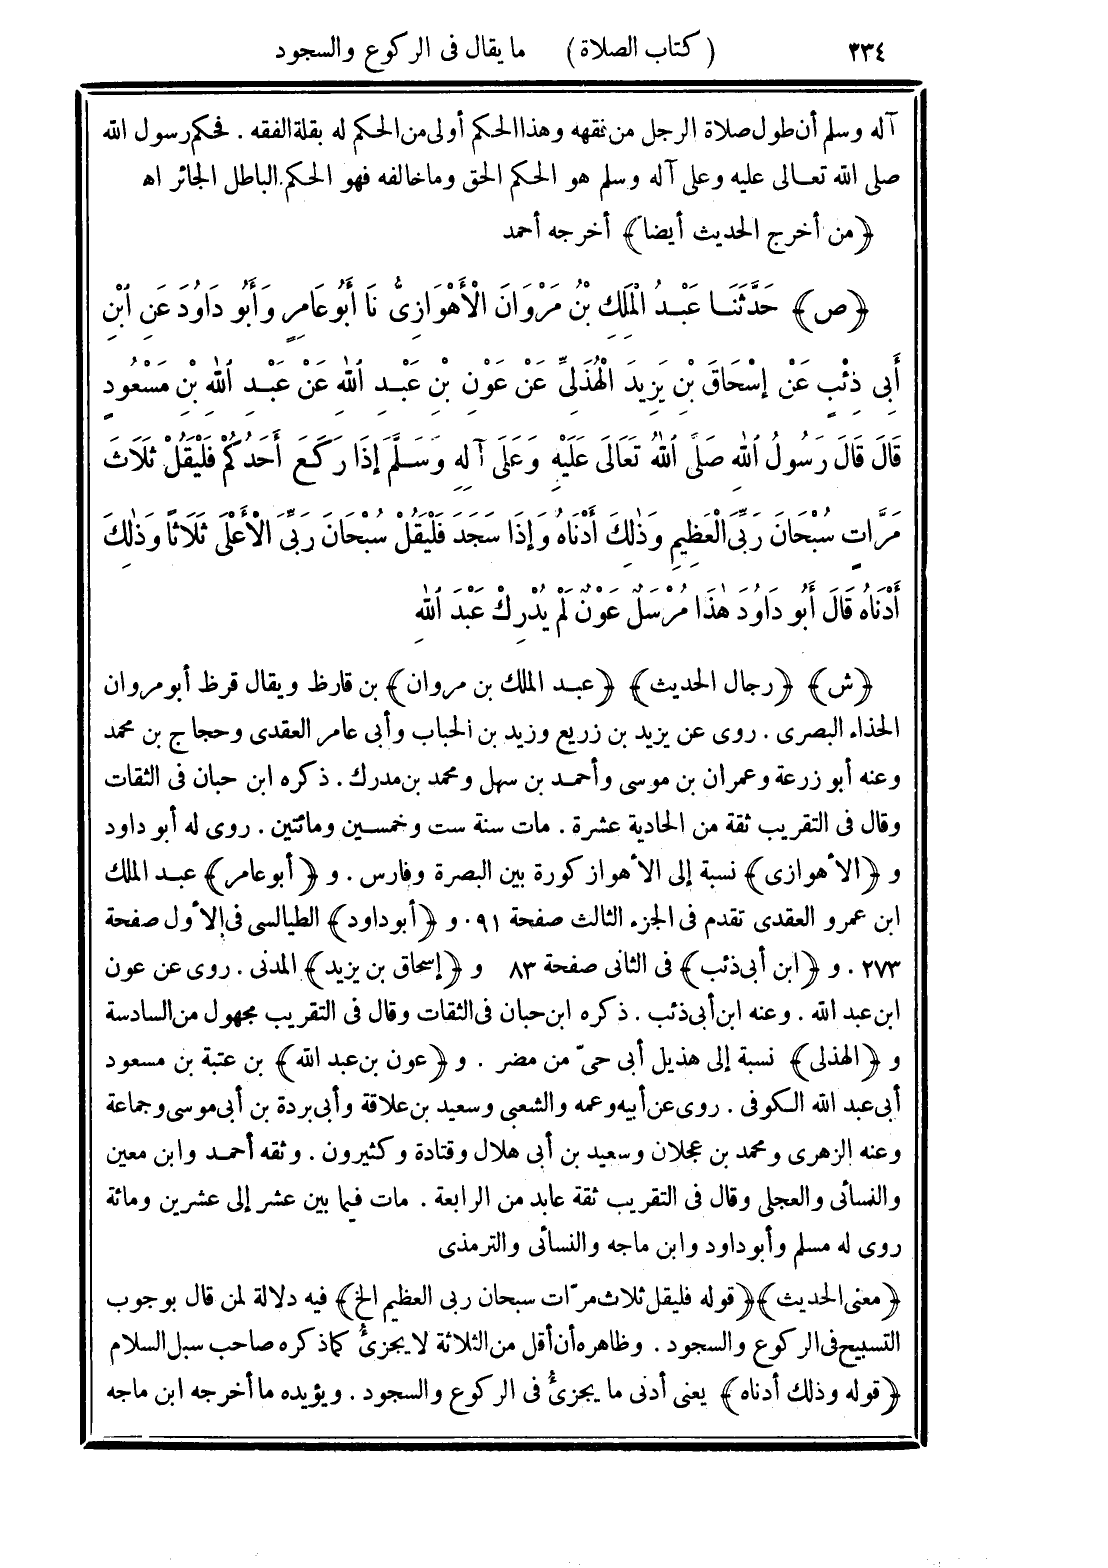 ٣٣٤ (كتاب الصلاة) ما يقال فى الركوع والسجود
آله وسلم أن طول صلاة الرجل من نقهه وهذا الحكم أولى من الحكم له بقلة الفقه . فحكم رسول الله
صلى الله تعالى عليه وعلى آله وسلم هو الحكم الحق وماخالفه فهو الحكم الباطل الجائر اه
﴿من أخرج الحديث أيضا﴾ أخرجه أحمد
﴿ص﴾ حَدَّثَنَا عَبْدُ الْمَلِكِ بْنُ مَرْوَانَ الْأَهْوَازِىُّ نَا أَبُو عَامِرٍ وَأَبُو دَاوُدَ عَنِ ابْنِ
أَبِى ذِئْبٍ عَنْ إِسْحَاقَ بْنِ يَزِيدَ الْهُذَلِىِّ عَنْ عَوْنِ بْنِ عَبْدِ اللهِ عَنْ عَبْدِ اللهِ بْنِ مَسْعُودٍ
قَالَ قَالَ رَسُولُ اللهِ صَلَّى اللهُ تَعَالَى عَلَيْهِ وَعَلَى آلِهِ وَسَلَّمَ إِذَا رَكَعَ أَحَدُكُمْ فَلْيَقُلْ ثَلَاثَ
مَرَّاتٍ سُبْحَانَ رَبِّىَ الْعَظِيمِ وَذٰلِكَ أَدْنَاهُ وَإِذَا سَجَدَ فَلْيَقُلْ سُبْحَانَ رَبِّىَ الْأَعْلَى ثَلَاثًا وَذٰلِكَ
أَدْنَاهُ قَالَ أَبُو دَاوُدَ هٰذَا مُرْسَلٌ عَوْنٌ لَمْ يُدْرِكْ عَبْدَ اللهِ
﴿ش﴾ ﴿رجال الحديث﴾ ﴿عبد الملك بن مروان﴾ بن قارظ ويقال قرظ أبو مروان
الحذاء البصرى . روى عن يزيد بن زريع وزيد بن الحباب وأبى عامر العقدى وحجاج بن محمد
وعنه أبو زرعة وعمران بن موسى وأحمد بن سهل ومحمد بن مدرك . ذكره ابن حبان فى الثقات
وقال فى التقريب ثقة من الحادية عشرة . مات سنة ست وخمسين ومائتين . روى له أبو داود
و ﴿الأهوازى﴾ نسبة إلى الأهواز كورة بين البصرة وفارس . و ﴿أبو عامر﴾ عبد الملك
ابن عمرو العقدى تقدم فى الجزء الثالث صفحة ٠٩١ و ﴿أبو داود﴾ الطيالسى فى الأول صفحة
٢٧٣ . و ﴿ابن أبى ذئب﴾ فى الثانى صفحة ٨٣ و ﴿إسحاق بن يزيد﴾ المدنى . روى عن عون
ابن عبد الله . وعنه ابن أبى ذئب . ذكره ابن حبان فى الثقات وقال فى التقريب مجهول من السادسة
و ﴿الهذلى﴾ نسبة إلى هذيل أبى حىّ من مضر . و ﴿عون بن عبد الله﴾ بن عتبة بن مسعود
أبى عبد الله الكوفى . روى عن أبيه وعمه والشعبى وسعيد بن علاقة وأبى بردة بن أبى موسى وجماعة
وعنه الزهرى ومحمد بن عجلان وسعيد بن أبى هلال وقتادة وكثيرون . وثقه أحمد وابن معين
والنسائى والعجلى وقال فى التقريب ثقة عابد من الرابعة . مات فيما بين عشر إلى عشرين ومائة
روى له مسلم وأبو داود وابن ماجه والنسائى والترمذى
﴿معنى الحديث﴾ ﴿قوله فليقل ثلاث مرّات سبحان ربى العظيم الخ﴾ فيه دلالة لمن قال بوجوب
التسبيح فى الركوع والسجود . وظاهره أن أقل من الثلاثة لا يجزئُ كما ذكره صاحب سبل السلام
﴿قوله وذلك أدناه﴾ يعنى أدنى ما يجزئُ فى الركوع والسجود . ويؤيده ما أخرجه ابن ماجه